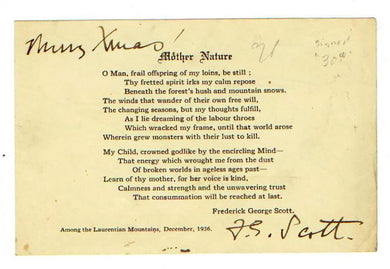 Merry Xmas!
signed
"30.00"
Mother Nature
O Man, frail offspring of my loins, be still ;
Thy fretted spirit irks my calm repose
Beneath the forest's hush and mountain snows.
The winds that wander of their own free will,
The changing seasons, but my thoughts fulfill,
As I lie dreaming of the labour throes
Which wracked my frame, until that world arose
Wherein grew monsters with their lust to kill.
My Child, crowned godlike by the encircling Mind—
That energy which wrought me from the dust
Of broken worlds in ageless ages past—
Learn of thy mother, for her voice is kind,
Calmness and strength and the unwavering trust
That consummation will be reached at last.
Frederick George Scott.
Among the Laurentian Mountains, December, 1936.
F.G. Scott.